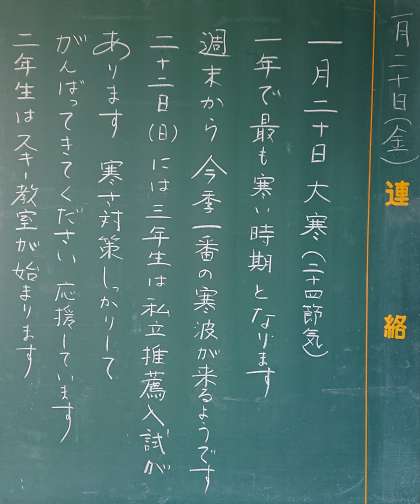 一月二十日(金)
連絡
一月二十日 大寒(二十四節気)
一年で最も寒い時期となります
週末から 今季一番の寒波が来るようです
二十二日(日)には三年生は私立推薦入試が
あります 寒さ対策しっかりして
がんばってきてください 応援しています
二年生はスキー教室が始まります